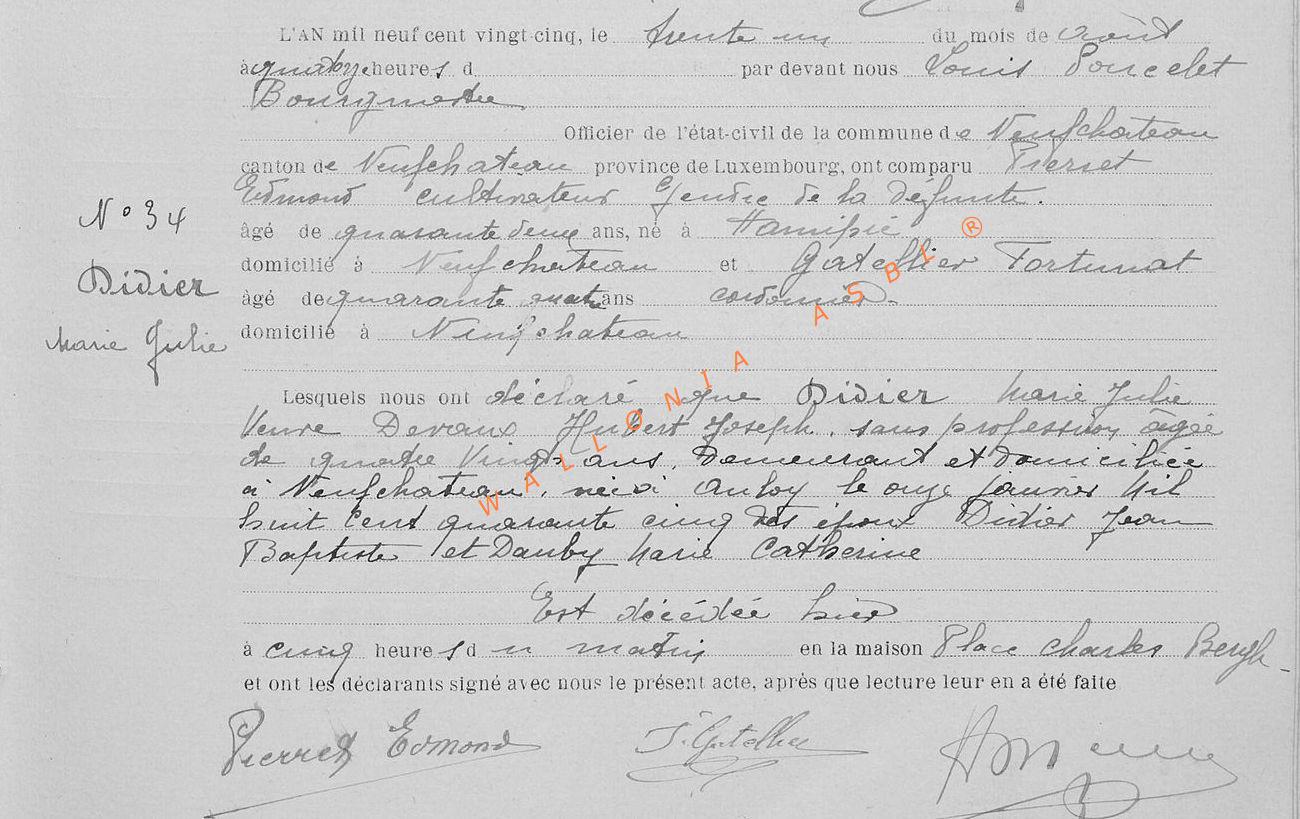 L'AN mil neuf cent vingt-cinq, le trente un du mois de Août
à quatorze heures d par devant nous Louis Poncelet
Bourgmestre
Officier de l'état-civil de la commune de Neufchateau
canton de Neufchateau province de Luxembourg, ont comparu Pierret
Edmond cultivateur Gendre de la défunte.
N° 34
âgé de quarante deux ans, né à Hamipré
domicilié à Neufchateau et Gatellier Fortunat
Didier
âgé de quarante quatre ans cordonnier
domicilié à Neufchateau
Marie Julie
Lesquels nous ont déclaré que Didier Marie Julie
Veuve Devaux Hubert Joseph, sans profession âgée
de quatre Vingts ans, Demeurant et domiciliée
à Neufchateau, née à Anloy le onze Janvier Mil
huit Cent quarante cinq des époux Didier Jean
Baptiste et Dauby Marie Catherine
Est décédée hier
à cinq heures du matin en la maison Place Charles Bergh
et ont les déclarants signé avec nous le présent acte, après que lecture leur en a été faite
Pierret Edmond
WALLONIA ASBL ®